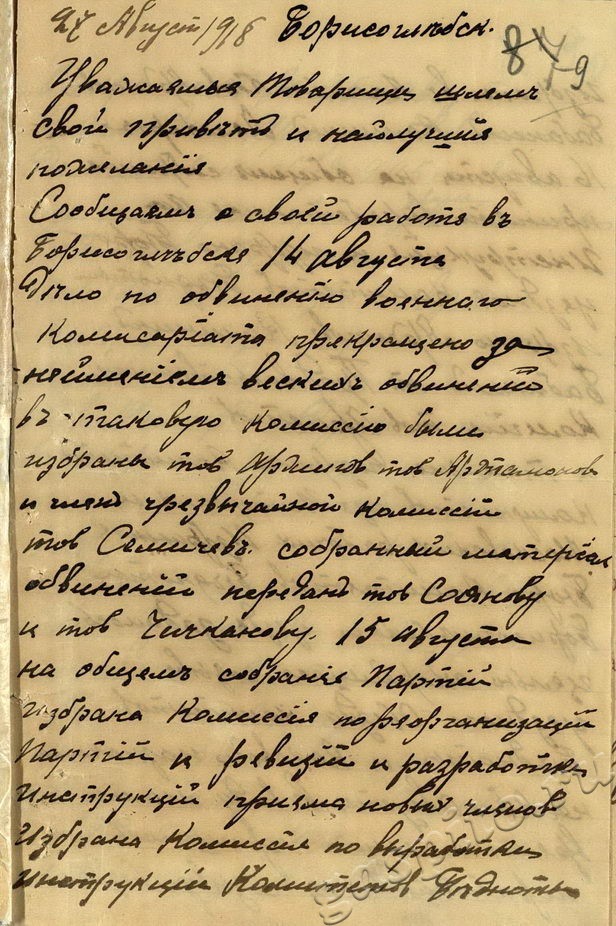 27 Август 1918 Борисоглѣбск.
879
Уважаемые Товарищи шлемъ
свой привѣтъ и наилучшія
пожеланія
Сообщаем о своей работѣ въ
Борисоглѣбске 14 августа
Дѣло по обвиненію военного
Комисаріата прекращено за
неименіемъ веских обвиненій
въ таковую Комиссію были
избраны тов тов Артамонов
и член чрезвычайной комиссій
тов Семичевъ. собранный матеріал
обвинений передан тов Соянову
и тов Чичканову. 15 августа
на общемъ собраніе Партій
избрана Комиссія по реорганизацій
Партій и ревизій и разработки
инструкцій приема новых членов
Избрана Комиссія по выработки
инструкціи Комитетов Бѣдноты